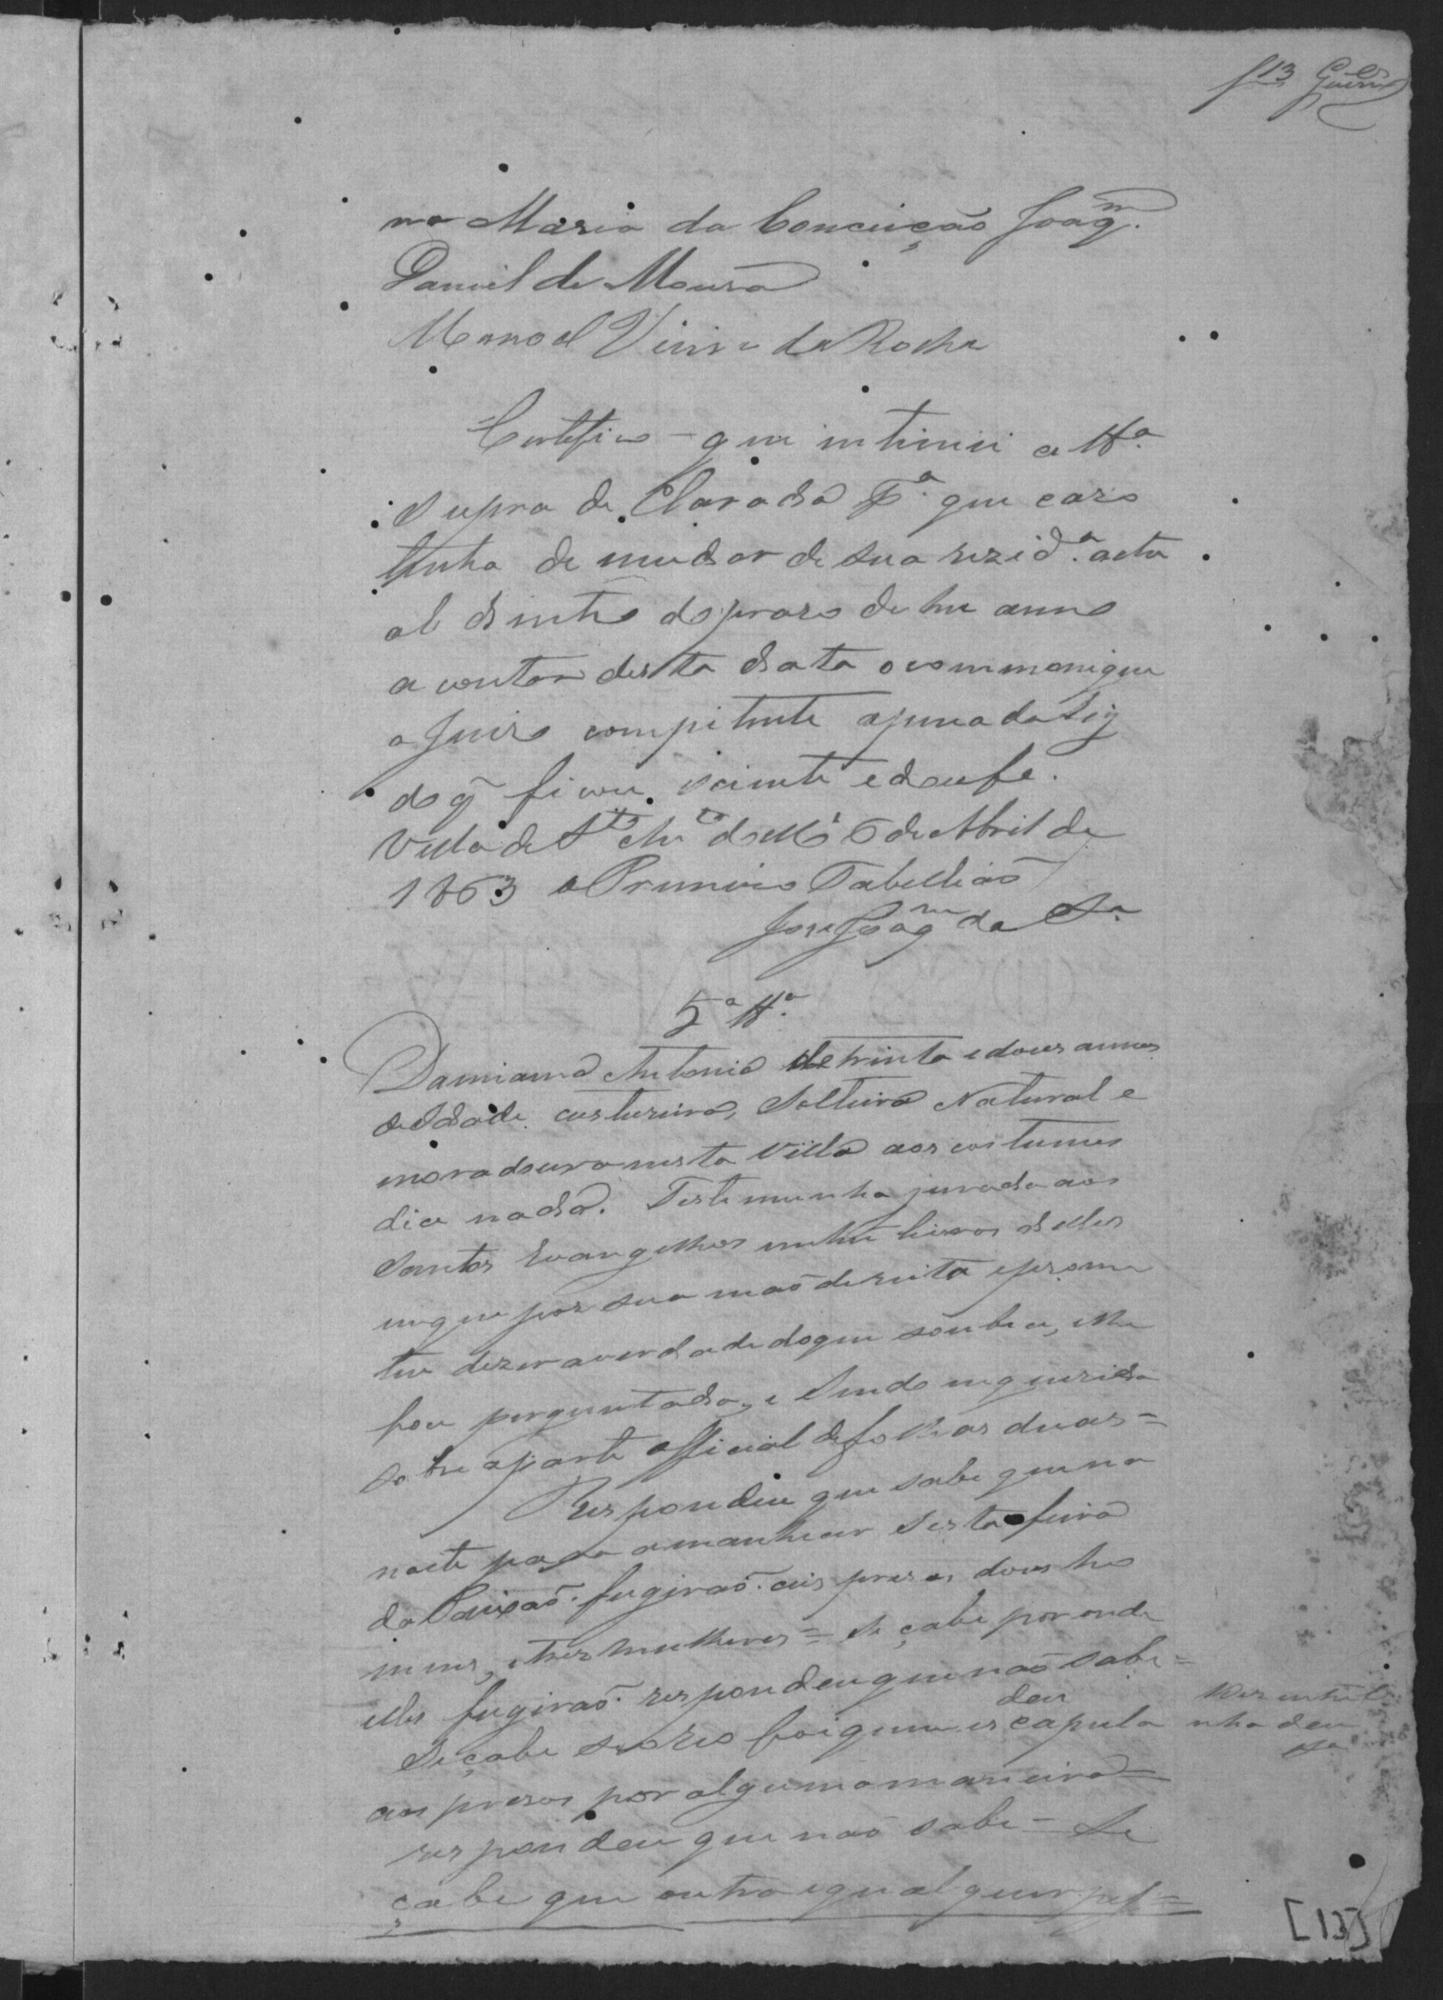 f 13
na Maria da Conceição Joaq.m
Daniel de Moura
Manoel Vieira da Rocha
Certifico que intimei a tt.a
supra declarada p.a que cazo
tenha de mudar de sua rezid.a actu
al dentro do prazo de hu anno
a contar desta data o commonique
a Juizo competente a pena da Ley
do q ficou sciente e dou fe.
Villa de 6 de Abril de
1863 o Primeiro Tabellião
Jose Joaq.m da S.a
5.a tt.a
Damiana Antonia de trinta e dous annos
de Idade, custureira, Solteira Natural e
moradoura nesta Villa aos costumes
dice nada. Testemunha jurada aos
Santos Evangelhos em hu livros delles
em que pos sua mão direita e prome
teu dizer a verdade do que soubece, e lhe
fou perguntado, e Sendo inquerida
sobre a parte official de folhas duas =
Respondeu que sabe que na
noite para amanhecer Sesta feira
da Paixaõ fugiraõ cis prezos dous ho
mens, e tres mulheres = Se çabe por onde
elles fugiraõ respondeu que naõ sabe =
Se çabe se o reo foi quem deu escapula
aos prezos por alguma maneira =
respondeu que naõ sabe = Se
çabe que outra equalquer pes=
nha deu
[13]